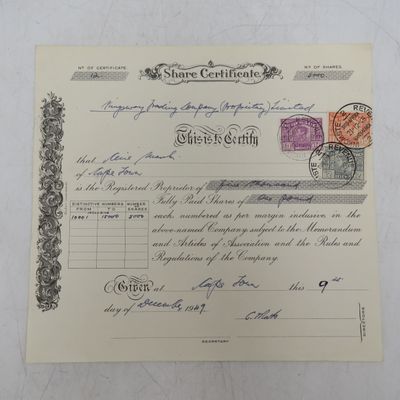 Nº OF CERTIFICATE.
Nº OF SHARES.
Share Certificate.
12
5000
Kingsway Trading Company (Proprietary) Limited
This is to Certify
that
of Cape Town
is the Registered Proprietor of five thousand
Fully Paid Shares of one pound
DISTINCTIVE NUMBERS INCLUSIVE
NUMBER OF SHARES
FROM
TO
10001
15000
5000
each numbered as per margin inclusive in the
above-named Company subject to the Memorandum
and Articles of Association and the Rules and
Regulations of the Company.
Given at Cape Town this 9th
day of December 1947
DIRECTORS
SECRETARY